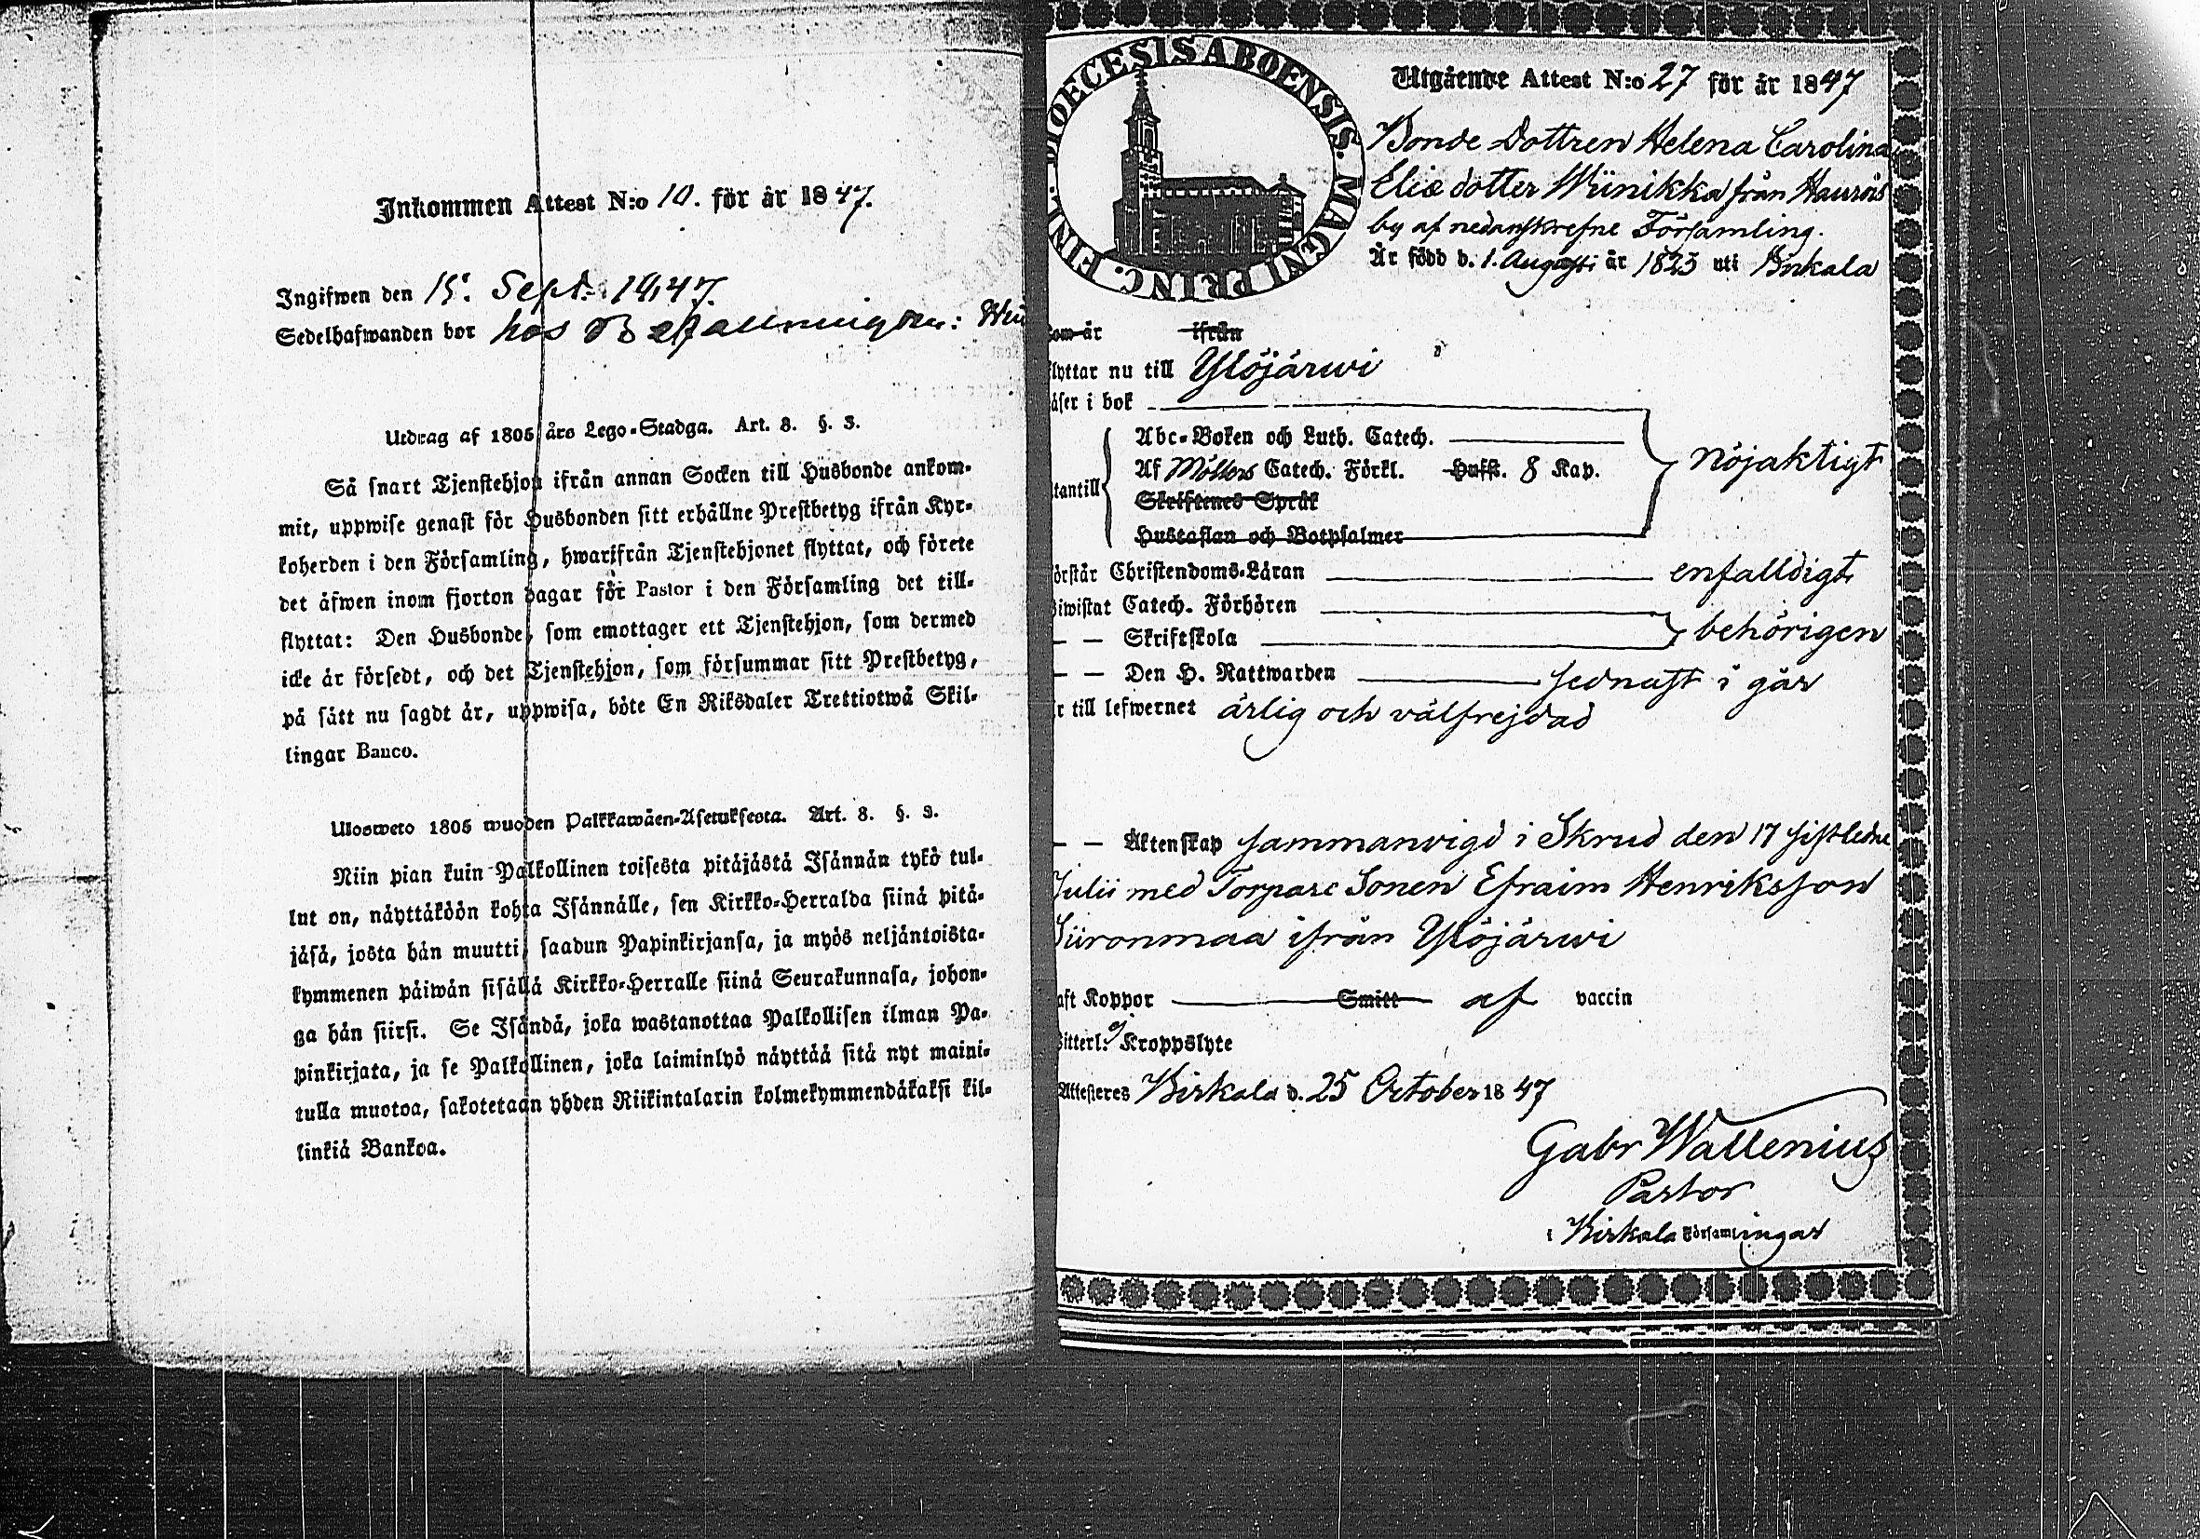 Inkommen Attest N:o 10. för år 1847.
Ingifwen den 15. Sept. 1847.
Sedelhafwanden bor hos
Utdrag af 1805 års Lego-Stadga. Art. 8. §. 3.
Så snart Tjenstehjon ifrån annan Socken till Husbonde ankom-
mit, uppwise genast för Husbonden sitt erhållne Prestbetyg ifrån Kyr-
koherden i den Församling, hwarifrån Tjenstehjonet flyttat, och förete
det äfwen inom fjorton dagar för Pastor i den Församling det till-
flyttat: Den Husbonde, som emottager ett Tjenstehjon, som dermed
icke är försedt, och det Tjenstehjon, som försummar sitt Prestbetyg,
på sätt nu sagdt är, uppwisa, böte En Riksdaler Trettiotwå Skil-
lingar Banco.
Ulosweto 1805 wuoden Palkkawäen-Asetuksesta. Art. 8. §. 3.
Niin pian kuin Palkollinen toisesta pitäjästä Isännän tykö tul-
lut on, näyttäköön kohta Isännälle, sen Kirkko-Herralda siinä pitä-
jäsä, josta hän muutti, saadun Papinkirjansa, ja myös neljäntoista-
kymmenen päiwän sisällä Kirkko-Herralle siinä Seurakunnasa, johon-
ga hän siirsi. Se Isändä, joka wastanottaa Palkollisen ilman Pa-
pinkirjata, ja se Palkollinen, joka laiminlyö näyttää sitä nyt maini-
tulla muotoa, sakotetaan yhden Riikintalarin kolmekymmendäkaksi kil-
linkiä Bankoa.
DIOECESIS ABOENSIS. MAGNI PRINC. FINL.
Utgående Attest N:o 27 för år 1847
Bonde Dottren Helena Carolina
Elisdotter Wiinikka från Haurois
by af nedanskrefne Församling.
Är född d. 1. Augusti år 1825 uti Birkala
om är ifrån
lyttar nu till Ylöjärwi
äser i bok
Abc-Boken och Luth. Catech.
Af Möllers Catech. Förkl. Husft. 8 Kap.
tantill
Skriftenes Språk
Hustaflan och Botpsalmer
nöjaktigt
örstår Christendoms-Läran enfalldigt
iwistat Catech. Förhören
— — Skriftskola behörigen
— — Den H. Nattwarden sednast i går
r till lefwernet ärlig och välfrejdad
— — Äktenskap sammanvigd i Skrud den 17 sistledne
Julii med Torpare Sonen Efraim Henriksson
Siironmaa ifrån Ylöjärwi
aft Koppor Smitt af vaccin
itterl. Kroppslyte
Attesteres Birkala d. 25 October 1847
Gabr Wallenius
Pastor
i Birkala Församlingar